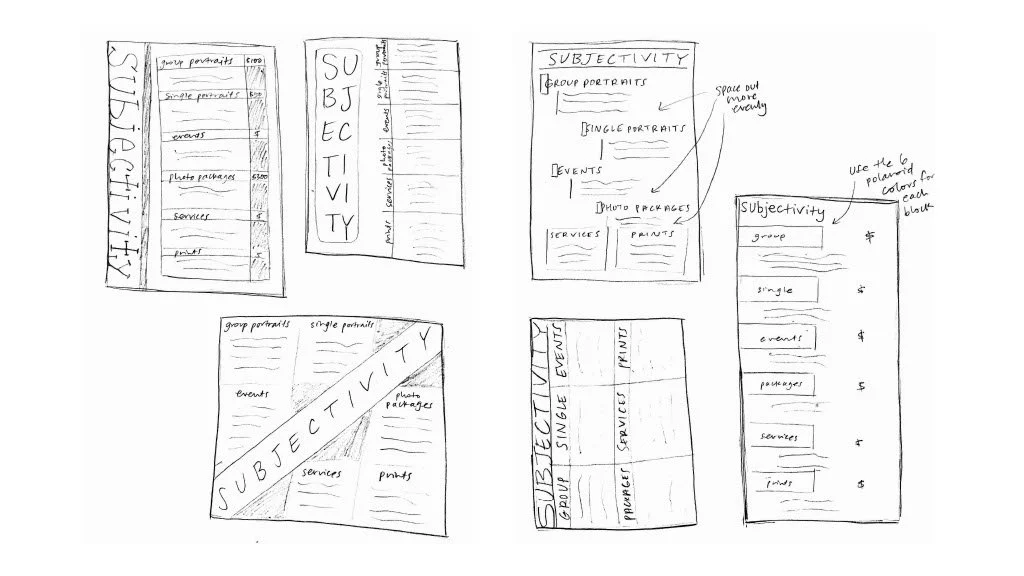 SUBJECTIVITY
group portraits $100
single portraits
events $
photo packages $300
services $
prints $
SU
BJ
EC
TI
VI
TY
group portraits
single portraits
events
photo packages
services
prints
SUBJECTIVITY
GROUP PORTRAITS
SINGLE PORTRAITS
EVENTS
PHOTO PACKAGES
SERVICES PRINTS
space out
more
evenly
use the 6
polaroid
colors for
each
block
Subjectivity
group $
single $
events $
packages $
services $
prints $
group portraits single portraits
events
photo
packages
SUBJECTIVITY
services prints
SUBJECTIVITY
GROUP SINGLE EVENTS
PACKAGES SERVICES PRINTS